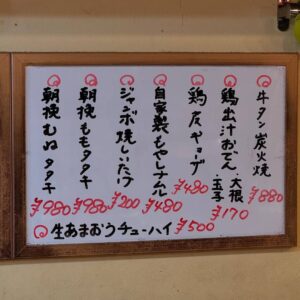 牛タン炭火焼 ¥880
鶏出汁おでん 大根 玉子 ¥170
鶏皮ギョーザ ¥480
自家製もやしナムル ¥480
ジャンボ焼しいたけ ¥200
朝挽ももタタキ ¥980
朝挽むねタタキ ¥980
生あまおうチューハイ ¥500